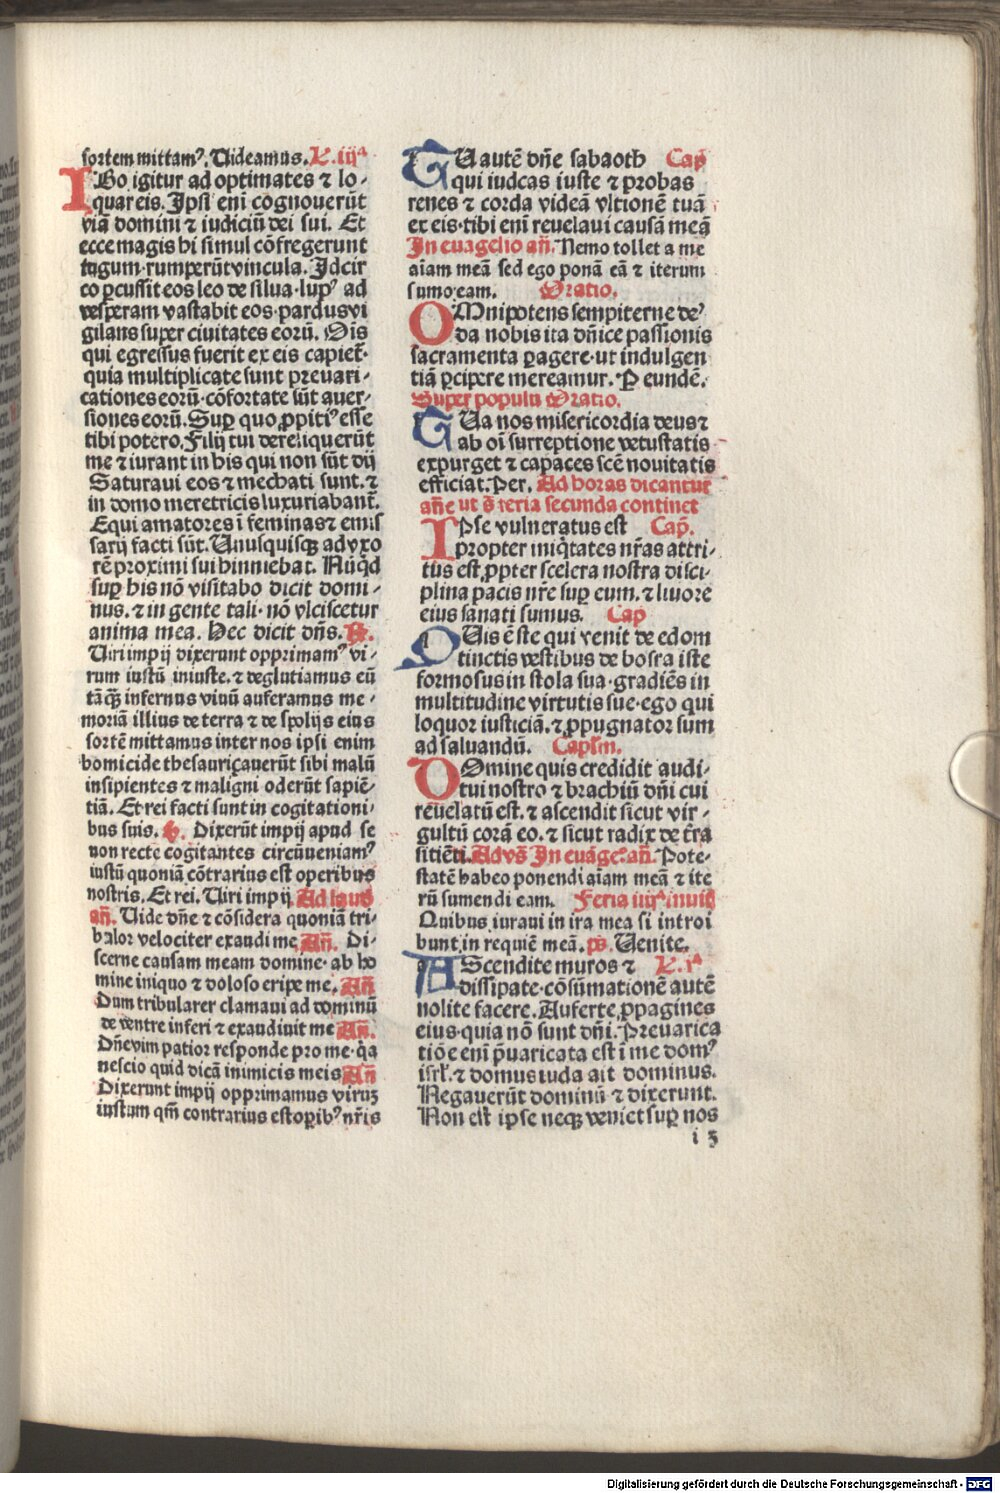 sortem mittamꝰ. Uideamus. L. iijª
IBo igitur ad optimates ⁊ lo-
quar eis. Ipsi eni cognouerūt
viā domini ⁊ iudiciū dei sui. Et
ecce magis hi simul cōfregerunt
iugum·rumperūt vincula. Idcir
co ꝑcussit eos leo de silua·lupꝰ ad
vesperam vastabit eos·pardus vi
gilans super ciuitates eorū. Ois
qui egressus fuerit ex eis capiet̄·
quia multiplicate sunt preuari-
cationes eorū·cōfortate sūt auer-
siones eorū. Suꝑ quo ꝓpitiꝰ esse
tibi potero. Filij tui dereliquerūt
me ⁊ iurant in his qui non sūt dij
Saturaui eos ⁊ mechati sunt. ⁊
in domo meretricis luxuriabant̄.
Equi amatores ī feminas ⁊ emis
sarij facti sūt. Unusquisqꝫ ad vxo
rē proximi sui hinniebat. Nūqd
suꝑ his nō visitabo dicit domi-
nus. ⁊ in gente tali· nō vlciscetur
anima mea. Hec dicit dñs. R.
Uiri impij dixerunt opprimamꝰ vi-
rum iustū iniuste. ⁊ deglutiamus eū
tāqꝫ infernus viuū auferamus me-
moriā illius de terra ⁊ de spolijs eius
sortē mittamus inter nos ipsi enim
homicide thesauriçauerūt sibi malū
insipientes ⁊ maligni oderūt sapiē-
tiā. Et rei facti sunt in cogitationi-
bus suis. V. Dixerūt impij apud se
non recte cogitantes circūueniamꝰ
iustū quoniā cōtrarius est operibus
nostris. Et rei. Uiri impij. Ad laud
añ. Uide dñe ⁊ cōsidera quoniā tri-
bulor velociter exaudi me. Añ. Di-
scerne causam meam domine· ab ho
mine iniquo ⁊ doloso eripe me. Añ
Dum tribularer clamaui ad dominū
de ventre inferi ⁊ exaudiuit me Añ.
Dñe vim patior responde pro me·qa
nescio quid dicā inimicis meis Añ
Dixerunt impij opprimamus virum
iustum qm̄ contrarius est oꝑibꝰ nr̄is
TU autē dñe sabaoth Cap̄
qui iudcas iuste ⁊ probas
renes ⁊ corda videā vltionē tuā
ex eis·tibi eni reuelaui causā meā
In euāgelio añ. Nemo tollet a me
aīam meā sed ego ponā eā ⁊ iterum
sumo eam. Oratio.
OMnipotens sempiterne deꝰ
da nobis ita dñice passionis
sacramenta ꝑagere·ut indulgen
tiā ꝑcipere mereamur. P eundē.
Super populū Oratio.
TUa nos misericordia deus ⁊
ab oī surreptione vetustatis
expurget ⁊ capaces scē nouitatis
efficiat. Per. Ad horas dicantur
añe ut ī feria secunda continet
IPse vulneratus est Cap̄.
propter iniqtates nr̄as attri-
tus est ꝓpter scelera nostra disci-
plina pacis nr̄e suꝑ eum. ⁊ liuore
eius sanati sumus. Cap
QUis ē iste qui venit de edom
tinctis vestibus de bosra iste
formosus in stola sua·gradiēs in
multitudine virtutis sue·ego qui
loquor iusticiā. ⁊ ꝓpugnator sum
ad saluandū. Caplm.
DOmine quis credidit audi-
tui nostro ⁊ brachiū dñi cui
reuelatū est. ⁊ ascendit sicut vir-
gultū corā eo. ⁊ sicut radix de t̄ra
sitiēti. Ad vs̄ In euāge. añ. Pote-
statē habeo ponendi aīam meā ⁊ ite
rū sumendi eam. Feria iiijª inuit
Quibus iuraui in ira mea si introi
bunt in requiē meā. ps. Uenite.
AScendite muros ⁊ L. iª
dissipate·cōsūmationē autē
nolite facere. Auferte ꝓpagines
eius·quia nō sunt dñi. Preuarica
tiōe eni p̄uaricata est ī me domꝰ
isrl. ⁊ domus iuda ait dominus.
Negauerūt dominū ⁊ dixerunt.
Non est ipse neqꝫ veniet suꝑ nos
i 3
Digitalisierung gefördert durch die Deutsche Forschungsgemeinschaft - DFG